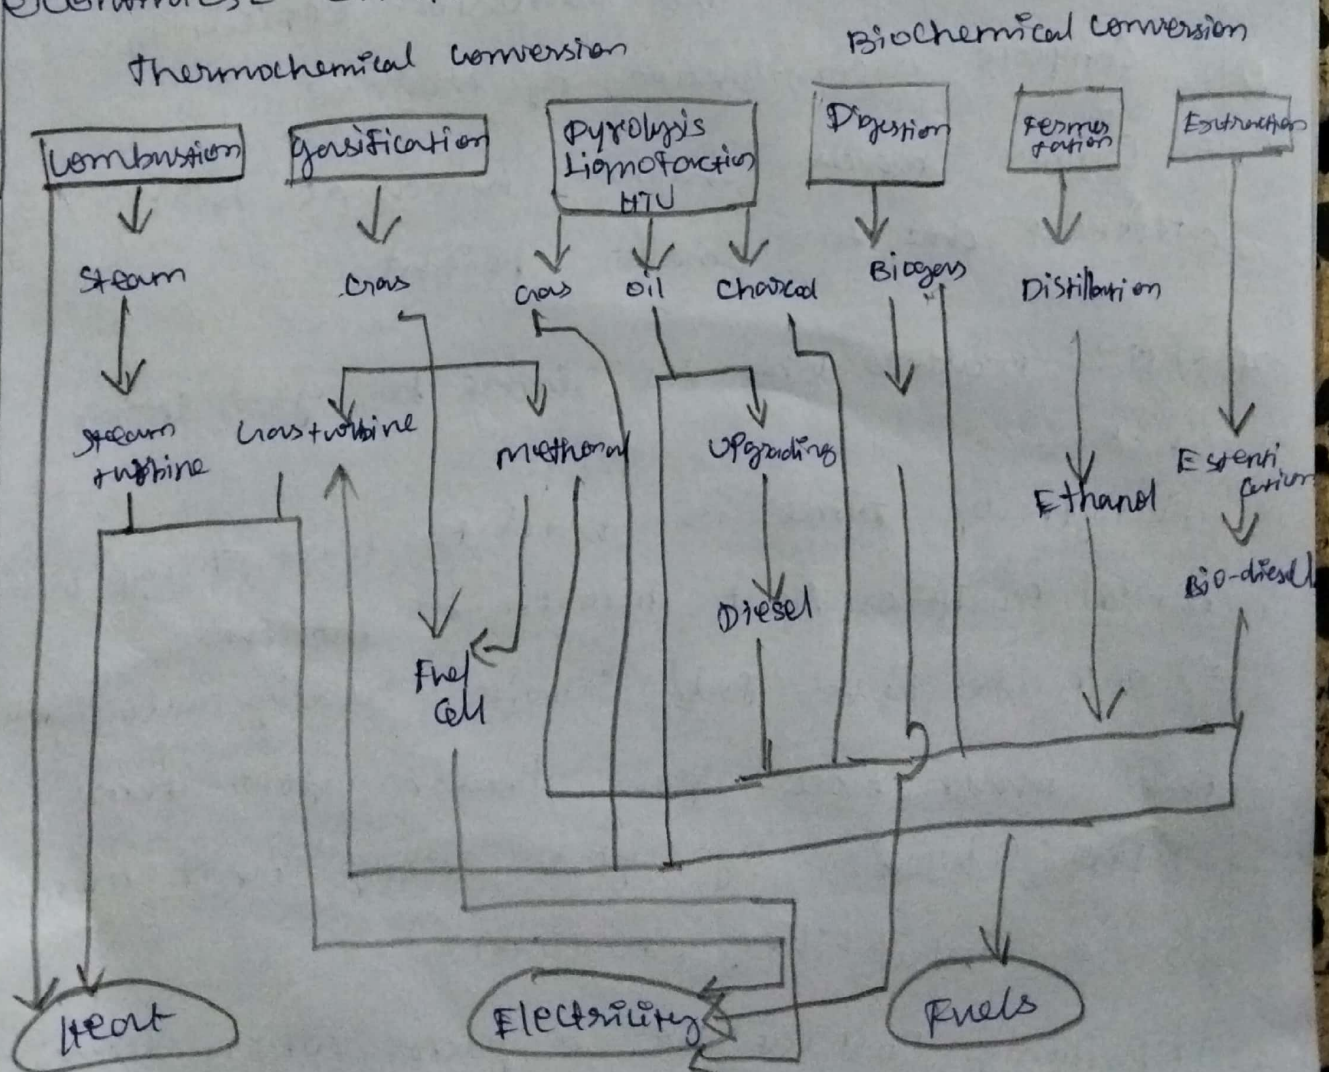 Thermochemical conversion
Biochemical conversion
Combustion
gasification
Pyrolysis
HTU
Digestion
Fermen
tation
Extraction
Steam
Gas
Gas
Oil
Charcoal
Biogas
Distillation
Steam
turbine
Gas turbine
Methanol
Upgrading
Ethanol
Esterifi
cation
Diesel
Bio-diesel
Fuel
Cell
Heat
Electricity
Fuels